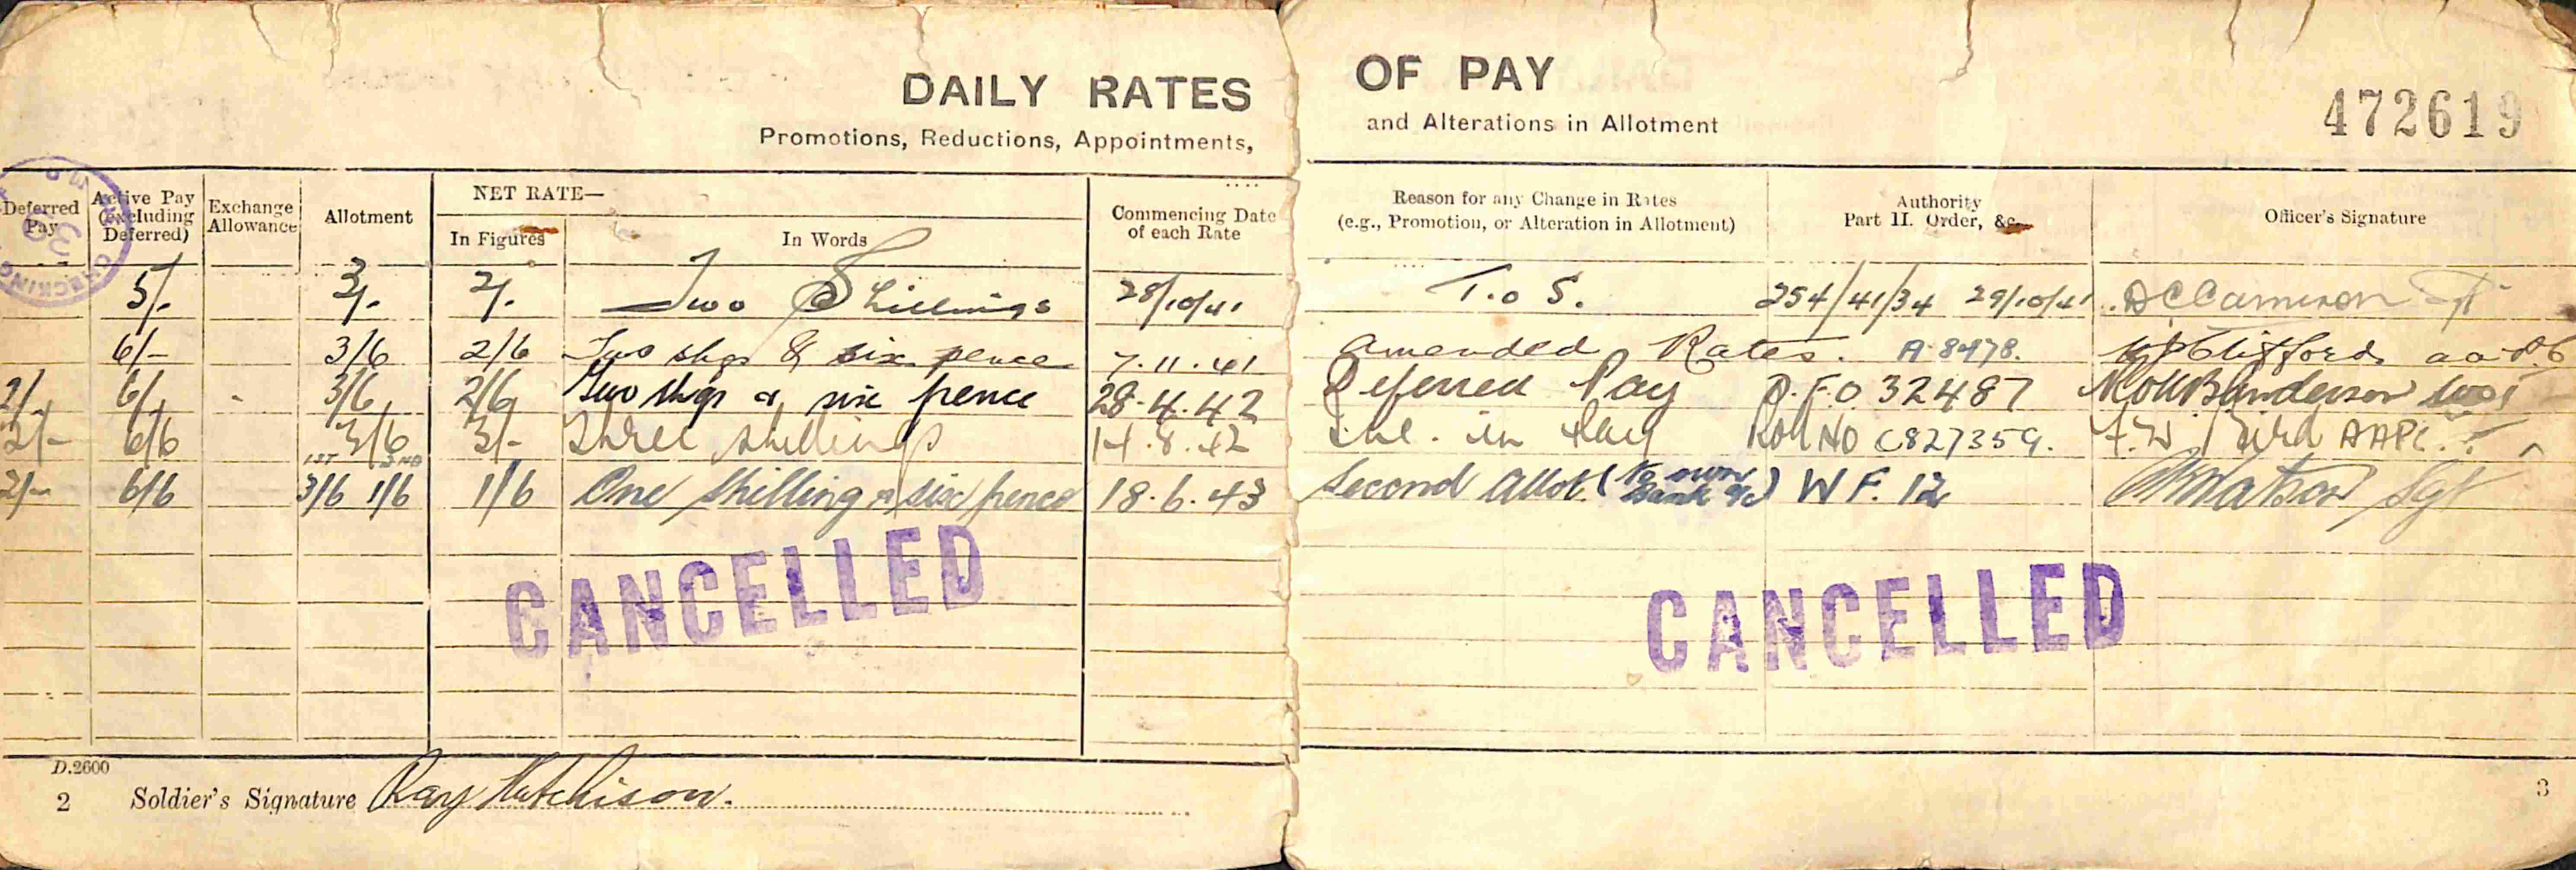 DAILY RATES OF PAY
Promotions, Reductions, Appointments, and Alterations in Allotment
472619
Deferred Pay
Active Pay (excluding Deferred)
Exchange Allowance
Allotment
NET RATE—
In Figures
In Words
Commencing Date of each Rate
Reason for any Change in Rates (e.g., Promotion, or Alteration in Allotment)
Authority Part II. Order, &c.
Officer's Signature
CHECKING
5/- 3/- 2/- Two Shillings 28/10/41 T.o S. 254/41/34 29/10/41 DCCameron
6/- 3/6 2/6 Two shgs & six pence 7.11.41 Amended Rates. A 8478.
2/ 6/ - 3/6 2/6 Two shgs & six pence 28.4.42 Deferred Pay D.F.O 32487
2/- 6/6 3/6 3/- Three shillings 14.8.42 Inc. in Pay Rol NO C827359. AAPC.
1ST 2ND
2/- 6/6 3/6 1/6 1/6 One Shilling & six pence 18.6.43 Second Allot. (to own Bank a/c) W F. 12 Watson Sgt
CANCELLED
CANCELLED
D.2600
2 Soldier's Signature Ray Hutchison.
3